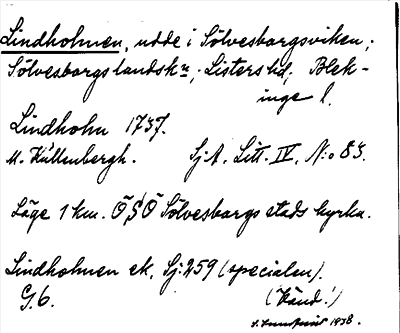 Lindholmen, udde i Sölvesborgsviken;
Sölvesborgs landskn; Listers hd; Blek-
inge l.
Lindholm 1737.
M. Kullenbergh. Sj A. Litt. IV. N:o 83.
Läge 1 km. ÖSÖ Sölvesborgs stads kyrka.
Lindholmen ek. Sj: 259 (specialen).
G. 6. (Känd!)
1938.